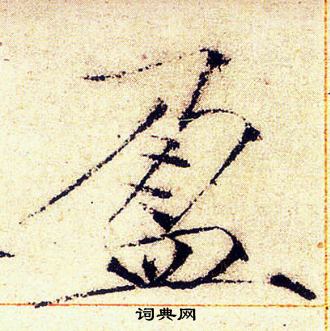 盈
词典网